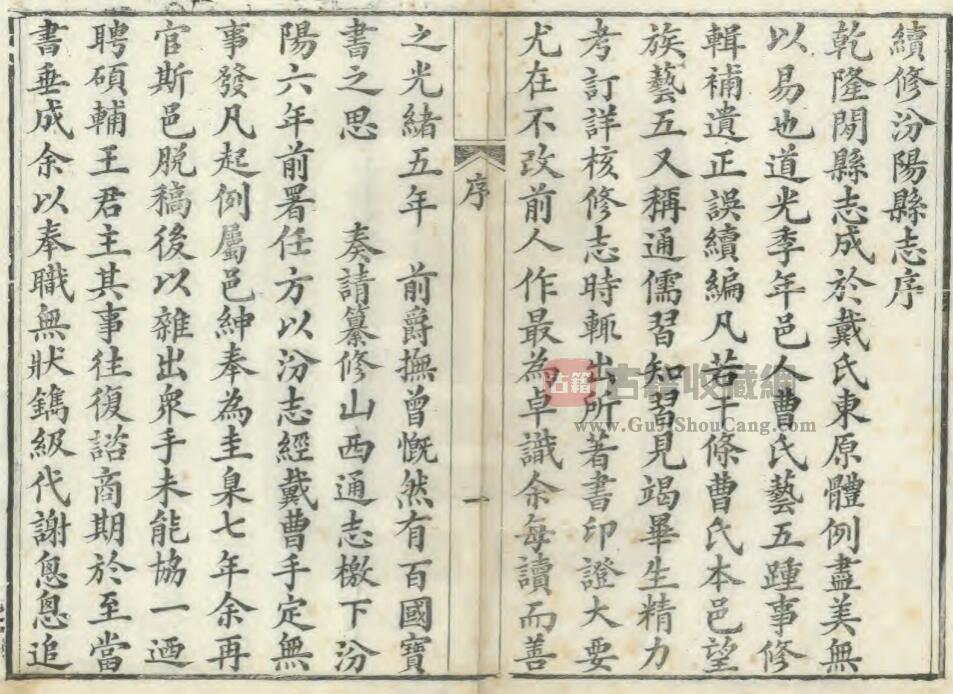 續修汾陽縣志序
乾隆閒縣志成於戴氏東原體例盡美無
以易也道光季年邑人曹氏藝五踵事修
輯補遺正誤續編凡若干條曹氏本邑望
族藝五又稱通儒習知習見竭畢生精力
考訂詳核修志時輒出所著書印證大要
尤在不改前人作最為卓識余每讀而善
序
一
之光緒五年　前爵撫曾慨然有百國寶
書之思　　奏請纂修山西通志檄下汾
陽六年前署任方以汾志經戴曹手定無
事發凡起例屬邑紳奉為圭臬七年余再
官斯邑脫稿後以雜出眾手未能協一迺
聘碩輔王君主其事往復諮商期於至當
書垂成余以奉職無狀鐫級代謝悤悤追
古籍
古籍收藏網
www.GuJiShouCang.com